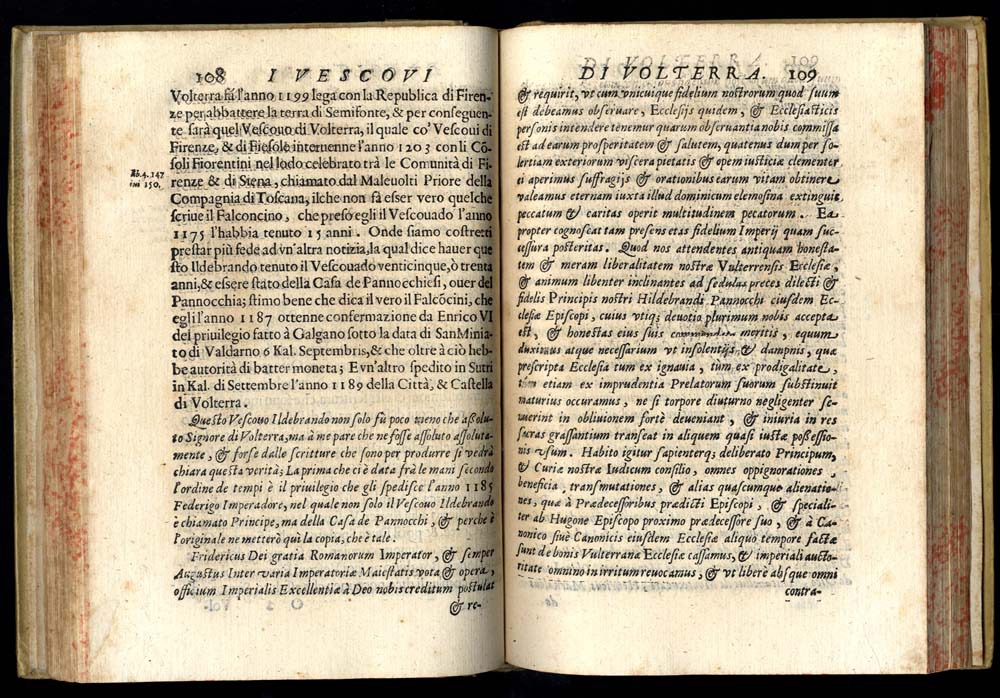 108 I VESCOVI
Volterra fà l'anno 1199 lega con la Republica di Firen-
ze per abbattere la terra di Semifonte, & per conseguen-
te sarà quel Vescouo di Volterra, il quale co' Vescoui di
Firenze, & di Fiesole interuenne l'anno 1203 con li Cō-
soli Fiorentini nel lodo celebrato trà le Comunità di Fi-
renze & di Siena, chiamato dal Maleuolti Priore della
lib. 4. 147
150.
Compagnia di Toscana, il che non fà esser vero quelche
scriue il Falconcino, che preso egli il Vescouado l'anno
1175 l'habbia tenuto 15 anni. Onde siamo costretti
prestar più fede ad vn'altra notizia, la qual dice hauer que
sto Ildebrando tenuto il Vescouado venticinque, ò trenta
anni, & essere stato della Casa de Pannocchiesi, ouer del
Pannocchia; stimo bene che dica il vero il Falcōcini, che
egli l'anno 1187 ottenne confermazione da Enrico VI
del priuilegio fatto à Galgano sotto la data di San Minia-
to di Valdarno 6 Kal. Septembris, & che oltre à ciò heb-
be autorità di batter moneta; E vn'altro spedito in Sutri
in Kal. di Settembre l'anno 1189 della Città, & Castella
di Volterra.
Questo Vescouo Ildebrando non solo fù poco meno che assolu-
to Signore di Volterra, ma à me pare che ne fosse assoluto assoluta-
mente, & forse dalle scritture che sono per produrre si vedrà
chiara questa verità; La prima che ci è data frà le mani secondo
l'ordine de tempi è il priuilegio che gli spedisce l'anno 1185
Federigo Imperadore, nel quale non solo il Vescouo Ildebrando
è chiamato Principe, ma della Casa de Pannocchi, & perche è
l'originale ne metterò quì la copia, che è tale.
Fridericus Dei gratia Romanorum Imperator, & semper
Augustus Inter varia Imperatoriæ Maiestatis vota & opera,
officium Imperialis Excellentiæ à Deo nobis creditum postulat
& re-
DI VOLTERRA. 109
& requirit, vt cum vnicuique fidelium nostrorum quod suum
est debeamus obseruare, Ecclesijs quidem, & Ecclesiasticis
personis intendere tenemur quarum obseruantia nobis commissa
est ad earum prosperitatem & salutem, quatenus dum per so-
lertiam exteriorum viscera pietatis & opem iusticiæ clementer
ei aperimus suffragijs & orationibus earum vitam obtinere
valeamus eternam iuxta illud dominicum elemosina extinguit
peccatum & caritas operit multitudinem pecatorum. Ea-
propter cognoscat tam presens etas fidelium Imperij quam suc-
cessura posteritas. Quod nos attendentes antiquam honesta-
tem & meram liberalitatem nostræ Vulterrensis Ecclesiæ,
& animum libenter inclinantes ad sedulas preces dilecti &
fidelis Principis nostri Hildebrandi Pannocchi eiusdem Ec-
clesiæ Episcopi, cuius vtiq; deuotio plurimum nobis accepta
est, & honestas eius suis commendata meritis, equum
duximus atque necessarium vt insolentijs & dampnis, quæ
prescripta Ecclesia tum ex ignauia, tum ex prodigalitate,
tùm etiam ex imprudentia Prelatorum suorum substinuit
maturius occuramus, ne si torpore diuturno negligenter se-
uerint in obliuionem fortè deueniant, & iniuria in res
sacras grassantium transeat in aliquem quasi iustæ possessio-
nis vsum. Habito igitur sapienterq; deliberato Principum,
& Curiæ nostræ Iudicum consilio, omnes oppignorationes,
beneficia, transmutationes, & alias quascumque alienatio-
nes, quæ à Prædecessoribus prædicti Episcopi, & speciali-
ter ab Hugone Episcopo proximo prædecessore suo, & à Ca-
nonico siuè Canonicis eiusdem Ecclesiæ aliquo tempore factæ
sunt de bonis Vulterranæ Ecclesiæ cassamus, & imperiali aucto-
ritate omnino in irritum reuocamus, & vt liberè absque omni
contra-